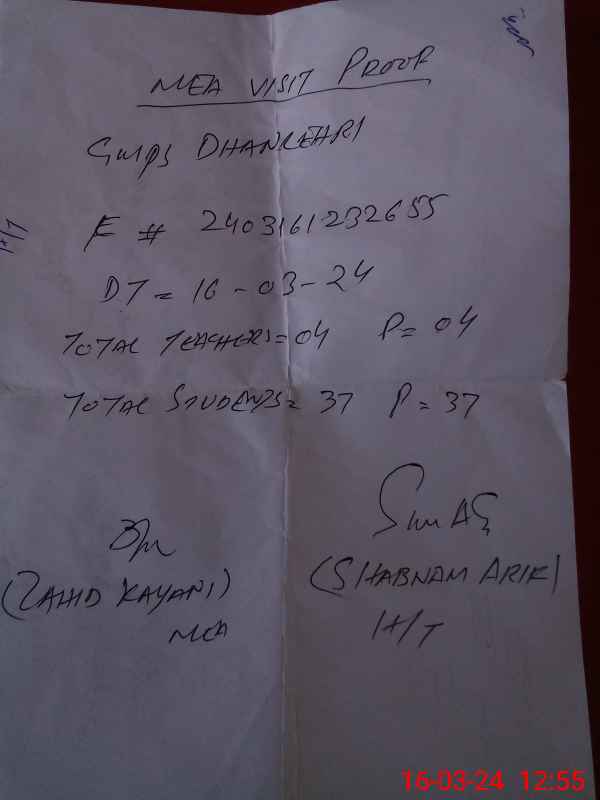 MEA VISIT PROOF
GMPS DHANKEHRI
E # 2403161232655
DT = 16-03-24
TOTAL TEACHERS = 04 P = 04
TOTAL STUDENTS = 37 P = 37
(ZAHID KAYANI)
MEA
(SHABNAM ARIF)
H/T
16-03-24 12:55